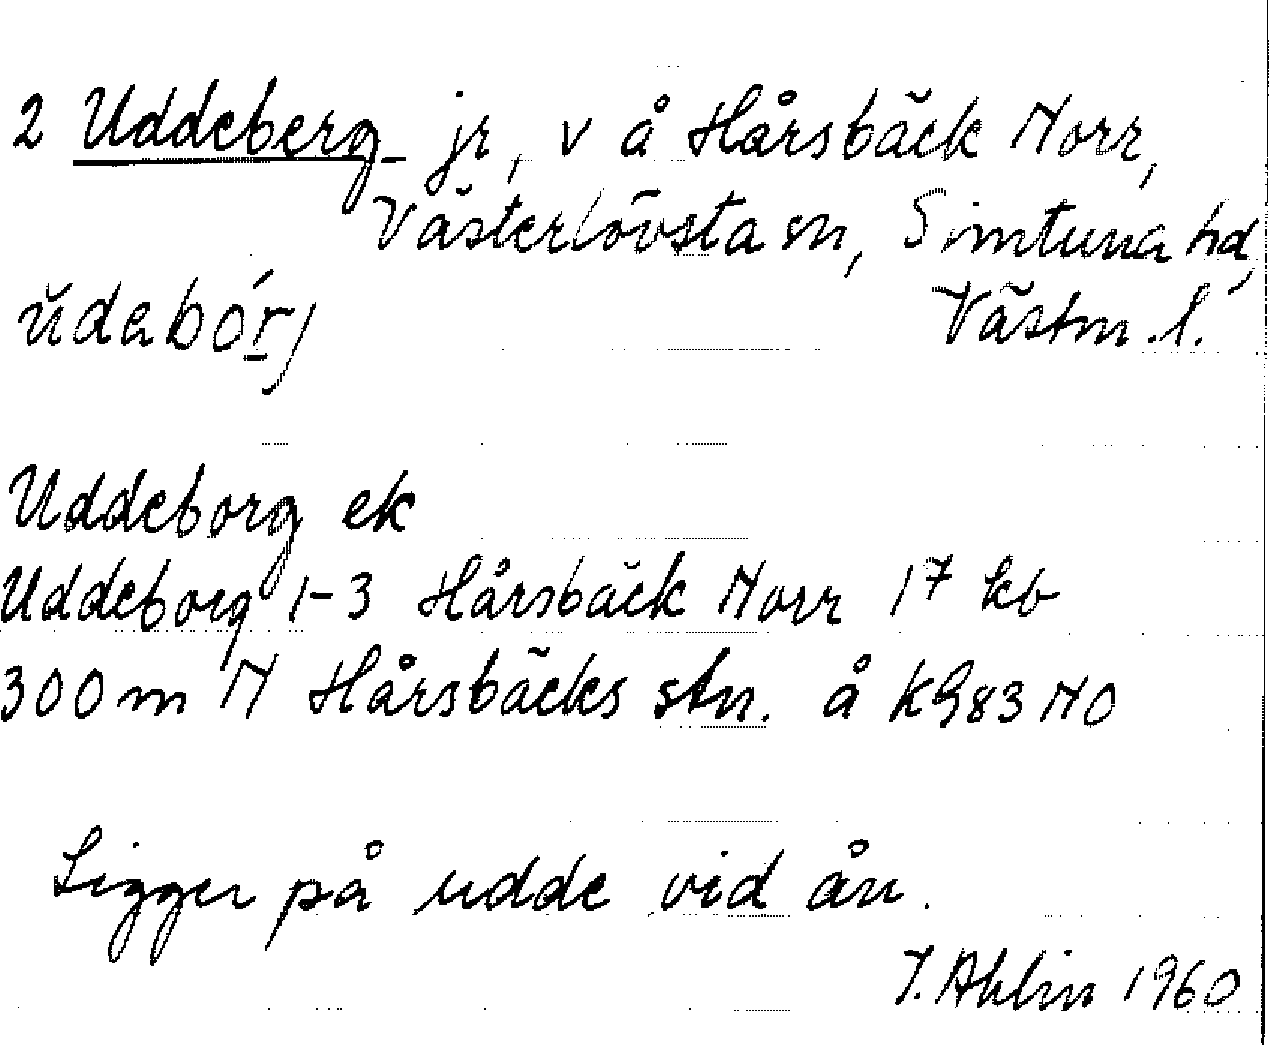 2 Uddeberg jr, v å Hårsbäck Norr,
Västerlövsta sn, Simtuna hd,
ŭdabórj Västm. l.
Uddeborg ek
Uddeborg 1-3 Hårsbäck Norr 17 kb
300 m N Hårsbäcks stn. å K983 NO
Ligger på udde vid ån.
Ahlin 1960